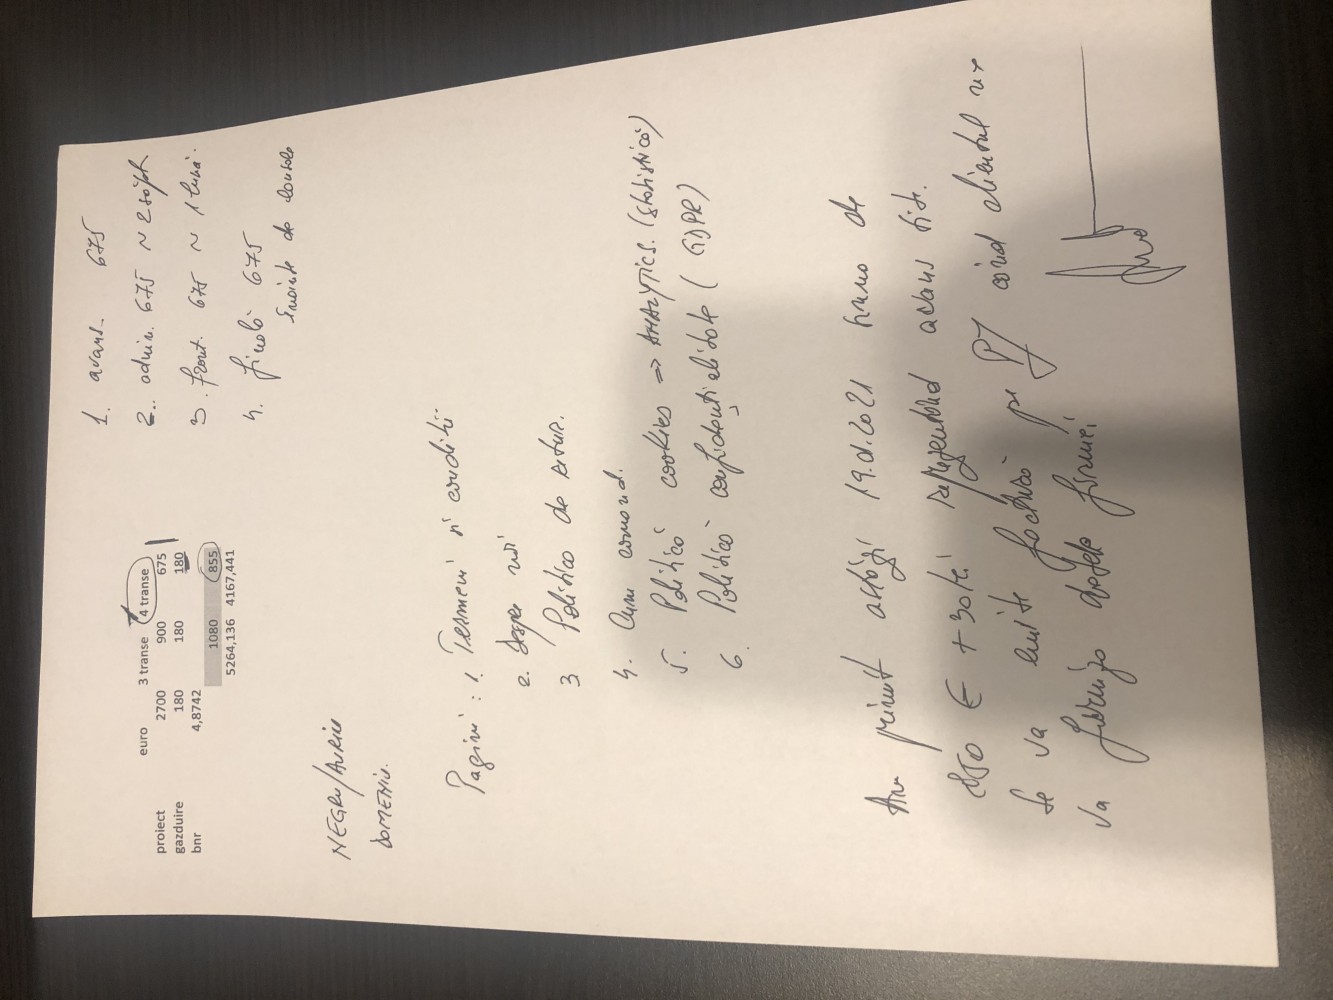 euro 3 transe 4 transe
proiect 2700 900 675
gazduire 180 180 180
bnr 4,8742
1080 855
5264,136 4167,441
1. avans. 675
2. admin. 675 ~ 2 săpt
3. front. 675 ~ 1 lună.
4. finală 675
înainte de lansare
NEGRU/AURIU
DOMENIU.
Pagini: 1. Termeni și condiții
2. despre noi
3 Politica de retur.
4. Cum comand.
5. Politică cookies => ANALYTICS. (statistică)
6. Politică confidențialitate (GDPR)
Am primit astăzi 19.01.2021 suma de
850 € + 30 lei reprezentând avans site.
Se va emite factura pe PJ când clientul
va furniza datele firmei